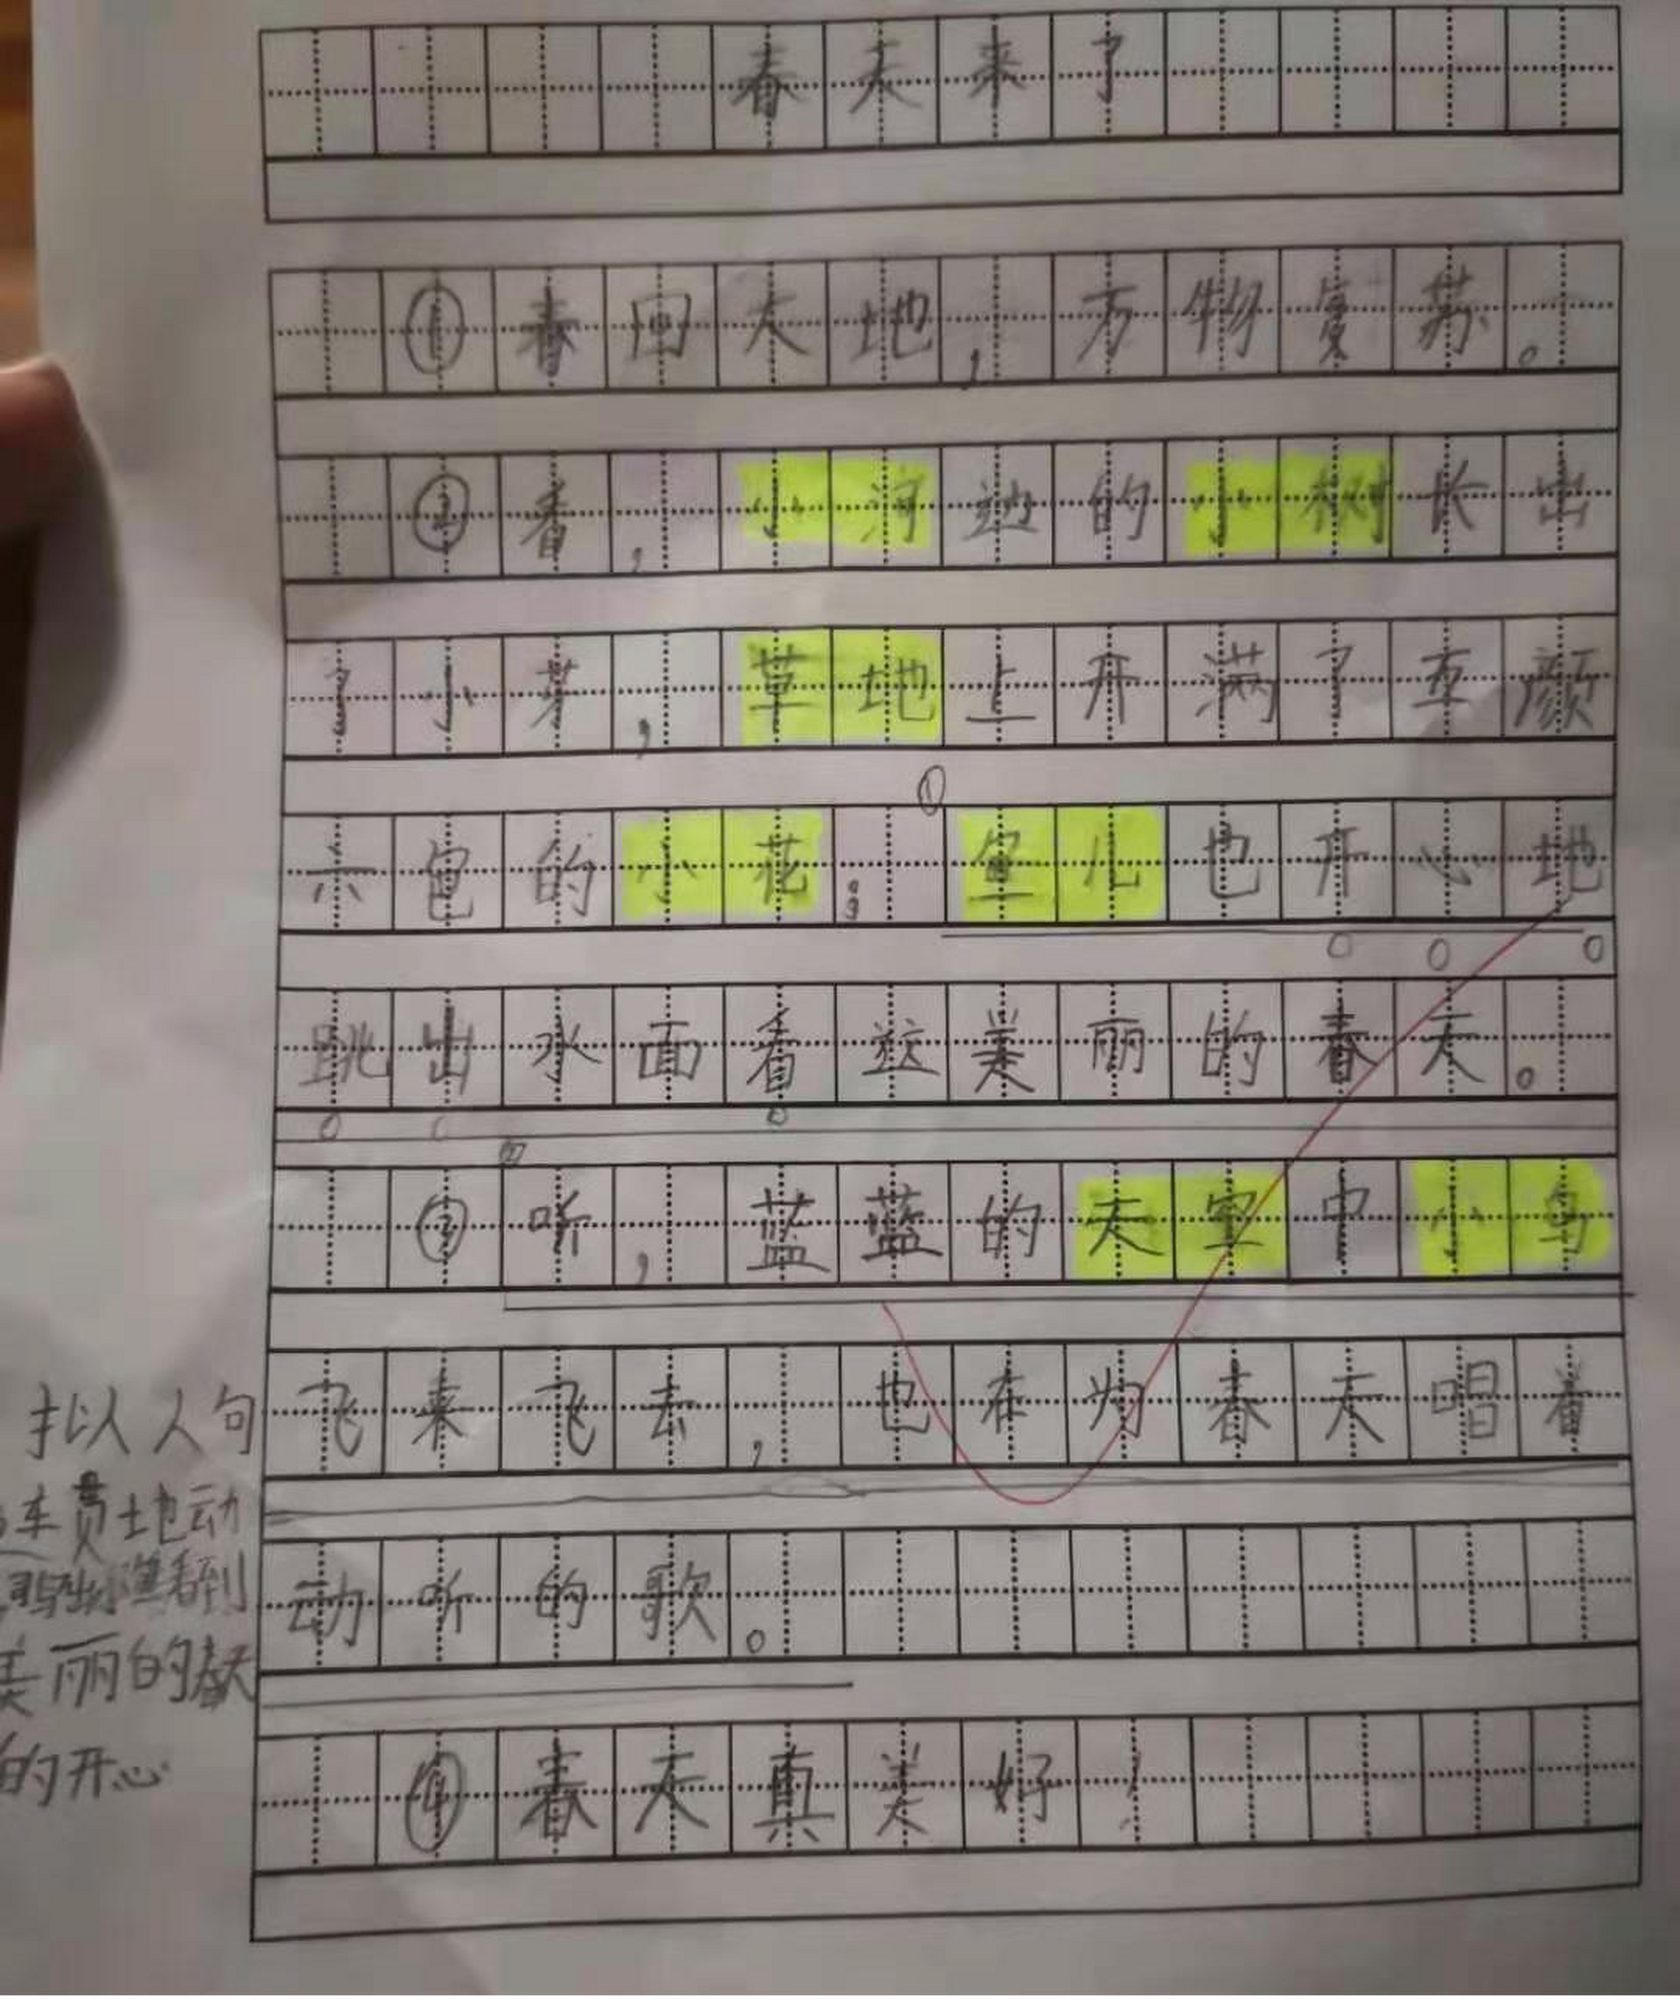 春天来了
①春回大地，万物复苏。
②看，小河边的小树长出
了小芽，草地上开满了五颜
①
六色的小花；鱼儿也开心地
跳出水面看这美丽的春天。
②
③听，蓝蓝的天空中小鸟
飞来飞去，也在为春天唱着
动听的歌。
④春天真美好！
拟人句
车贯地动
看到
美丽的春天
的开心